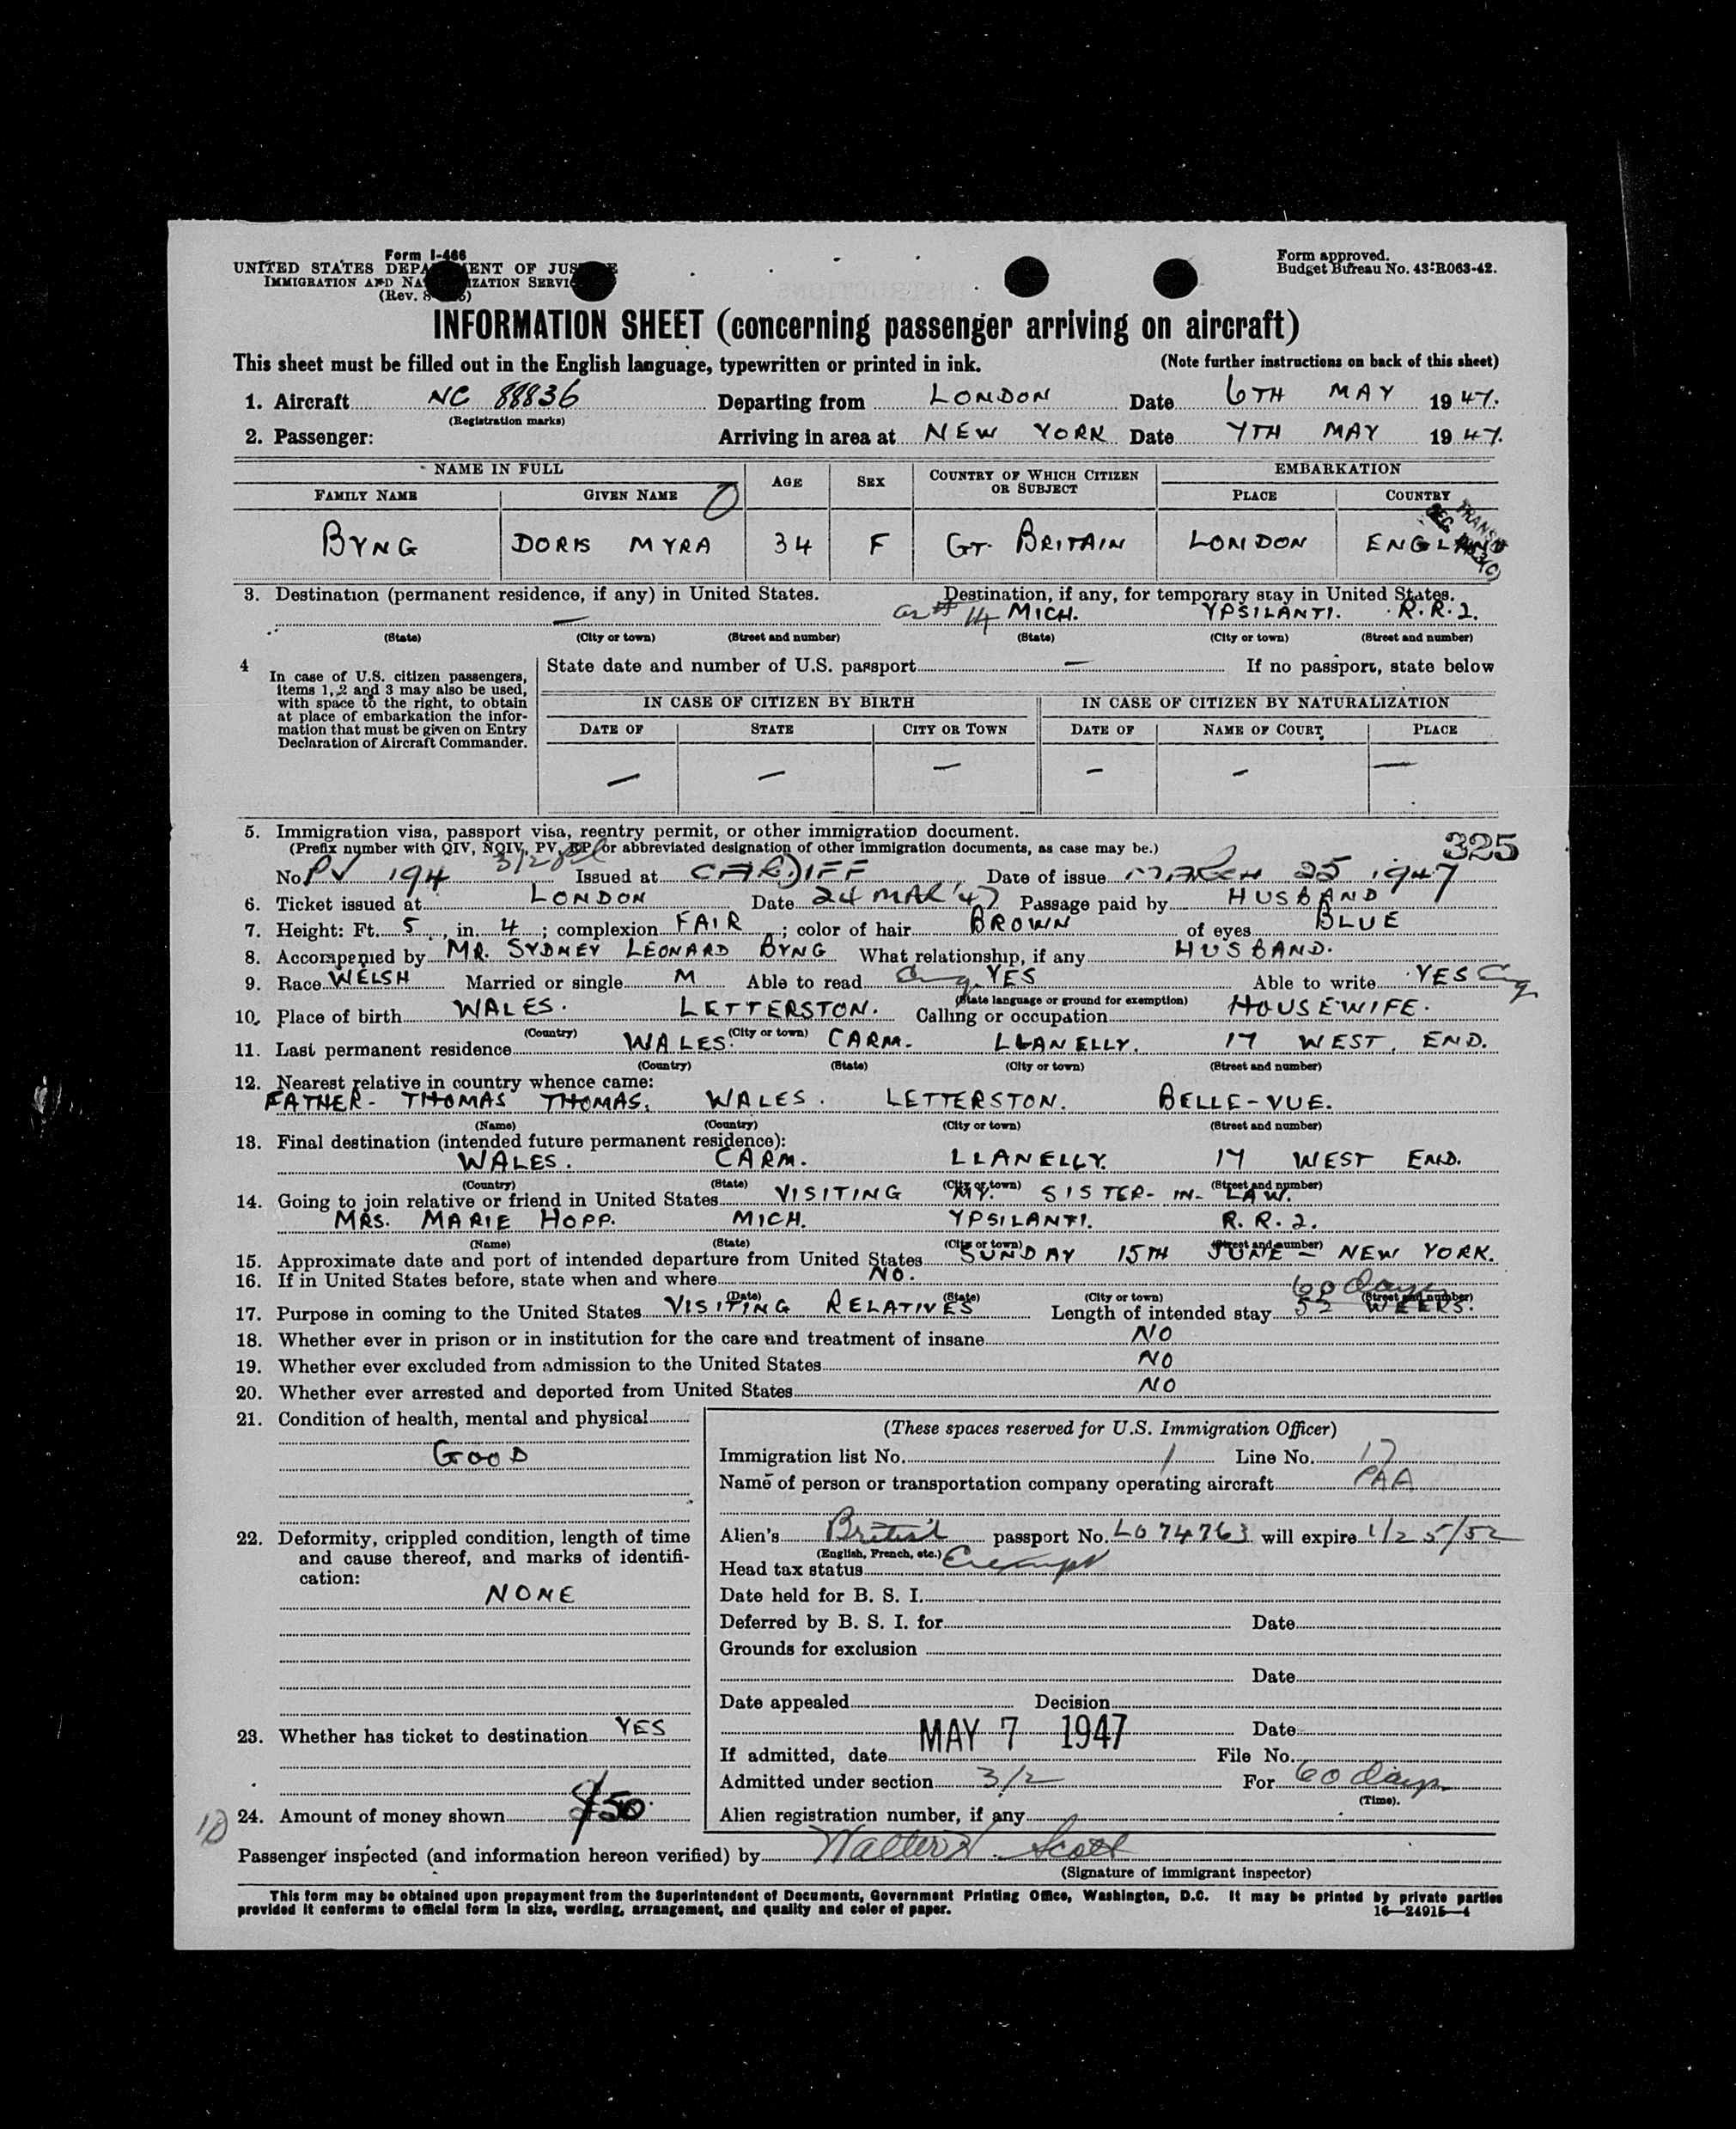 Form I-466
UNITED STATES DEPA ENT OF JUS E
IMMIGRATION AND NA IZATION SERVI
(Rev. 8 )
Form approved.
Budget Bureau No. 43-R063-42.
INFORMATION SHEET (concerning passenger arriving on aircraft)
This sheet must be filled out in the English language, typewritten or printed in ink. (Note further instructions on back of this sheet)
1. Aircraft NC 88836 Departing from LONDON Date 6TH MAY 1947.
(Registration marks)
2. Passenger: Arriving in area at NEW YORK Date 7TH MAY 1947.
NAME IN FULL AGE SEX COUNTRY OF WHICH CITIZEN OR SUBJECT EMBARKATION
FAMILY NAME GIVEN NAME PLACE COUNTRY
BYNG DORIS MYRA 34 F GT. BRITAIN LONDON ENGLAND
TRANSIT
SEC. 3(C)
3. Destination (permanent residence, if any) in United States. Destination, if any, for temporary stay in United States.
— as # 14 MICH. YPSILANTI. R.R.2.
(State) (City or town) (Street and number) (State) (City or town) (Street and number)
4 In case of U.S. citizen passengers, items 1, 2 and 3 may also be used, with space to the right, to obtain at place of embarkation the information that must be given on Entry Declaration of Aircraft Commander.
State date and number of U.S. passport — If no passport, state below
IN CASE OF CITIZEN BY BIRTH IN CASE OF CITIZEN BY NATURALIZATION
DATE OF STATE CITY OR TOWN DATE OF NAME OF COURT PLACE
— — — — — —
5. Immigration visa, passport visa, reentry permit, or other immigration document.
325
(Prefix number with QIV, NQIV, PV, RP, or abbreviated designation of other immigration documents, as case may be.)
3/2
No. PV 194 Issued at CARDIFF Date of issue MARCH 25 1947
6. Ticket issued at LONDON Date 24 MAR '47 Passage paid by HUSBAND
7. Height: Ft. 5, in. 4; complexion FAIR; color of hair BROWN of eyes BLUE
8. Accompanied by MR. SYDNEY LEONARD BYNG What relationship, if any HUSBAND.
9. Race WELSH Married or single M Able to read Eng. YES Able to write YES Eng
(State language or ground for exemption)
10. Place of birth WALES. LETTERSTON. Calling or occupation HOUSEWIFE.
(Country) (City or town)
11. Last permanent residence WALES. CARM. LLANELLY. 17 WEST. END.
(Country) (State) (City or town) (Street and number)
12. Nearest relative in country whence came:
FATHER- THOMAS THOMAS. WALES. LETTERSTON. BELLE-VUE.
(Name) (Country) (City or town) (Street and number)
13. Final destination (intended future permanent residence):
WALES. CARM. LLANELLY. 17 WEST END.
(Country) (State) (City or town) (Street and number)
14. Going to join relative or friend in United States VISITING MY. SISTER-IN-LAW.
MRS. MARIE HOPP. MICH. YPSILANTI. R.R.2.
(Name) (State) (City or town) (Street and number)
15. Approximate date and port of intended departure from United States SUNDAY 15TH JUNE - NEW YORK.
16. If in United States before, state when and where NO.
(Date) (State) (City or town) (Street and number)
60 days
17. Purpose in coming to the United States VISITING RELATIVES Length of intended stay 5½ WEEKS.
18. Whether ever in prison or in institution for the care and treatment of insane NO
19. Whether ever excluded from admission to the United States NO
20. Whether ever arrested and deported from United States NO
21. Condition of health, mental and physical
GOOD
22. Deformity, crippled condition, length of time and cause thereof, and marks of identification:
NONE
23. Whether has ticket to destination YES
24. Amount of money shown $50.
(These spaces reserved for U.S. Immigration Officer)
Immigration list No. 1 Line No. 17
Name of person or transportation company operating aircraft PAA
Alien's British passport No. LO 74763 will expire 1/25/52
(English, French, etc.)
Head tax status Exempt
Date held for B. S. I.
Deferred by B. S. I. for Date
Grounds for exclusion
Date
Date appealed Decision
Date
If admitted, date MAY 7 1947 File No.
Admitted under section 3/2 For 60 days
(Time).
Alien registration number, if any
Passenger inspected (and information hereon verified) by Walter H. Scott
(Signature of immigrant inspector)
This form may be obtained upon prepayment from the Superintendent of Documents, Government Printing Office, Washington, D.C. It may be printed by private parties
provided it conforms to official form in size, wording, arrangement, and quality and color of paper. 16—24915-4